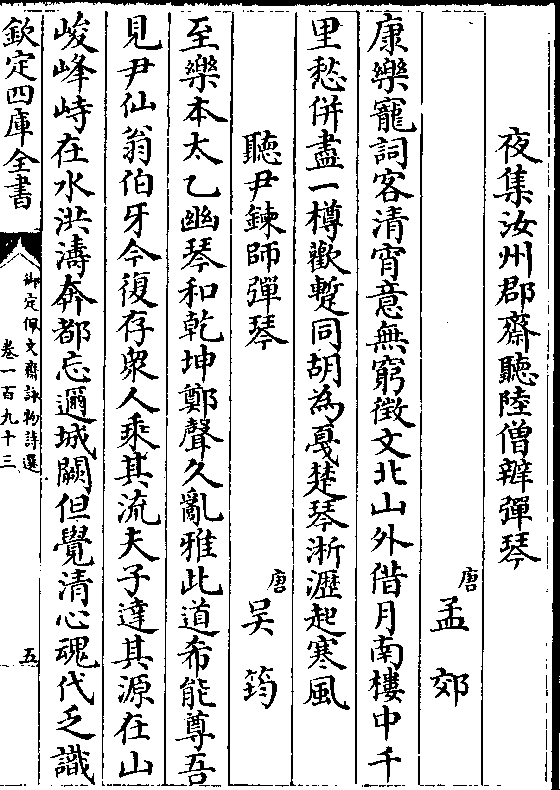 夜集汝州郡齋聽陸僧辯彈琴
唐孟郊
康樂寵詞客清宵意無窮徵文北山外借月南樓中千
里愁併盡一樽歡暫同胡為戛楚琴淅瀝起寒風
聽尹鍊師彈琴
唐吳筠
至樂本太乙幽琴和乾坤鄭聲久亂雅此道希能尊吾
見尹仙翁伯牙今復存衆人乘其流夫子達其源在山
峻峰峙在水洪濤奔都忘邇城闕但覺清心魂代乏識
欽定四庫全書
御定佩文齋詠物詩選
卷一百九十三
五